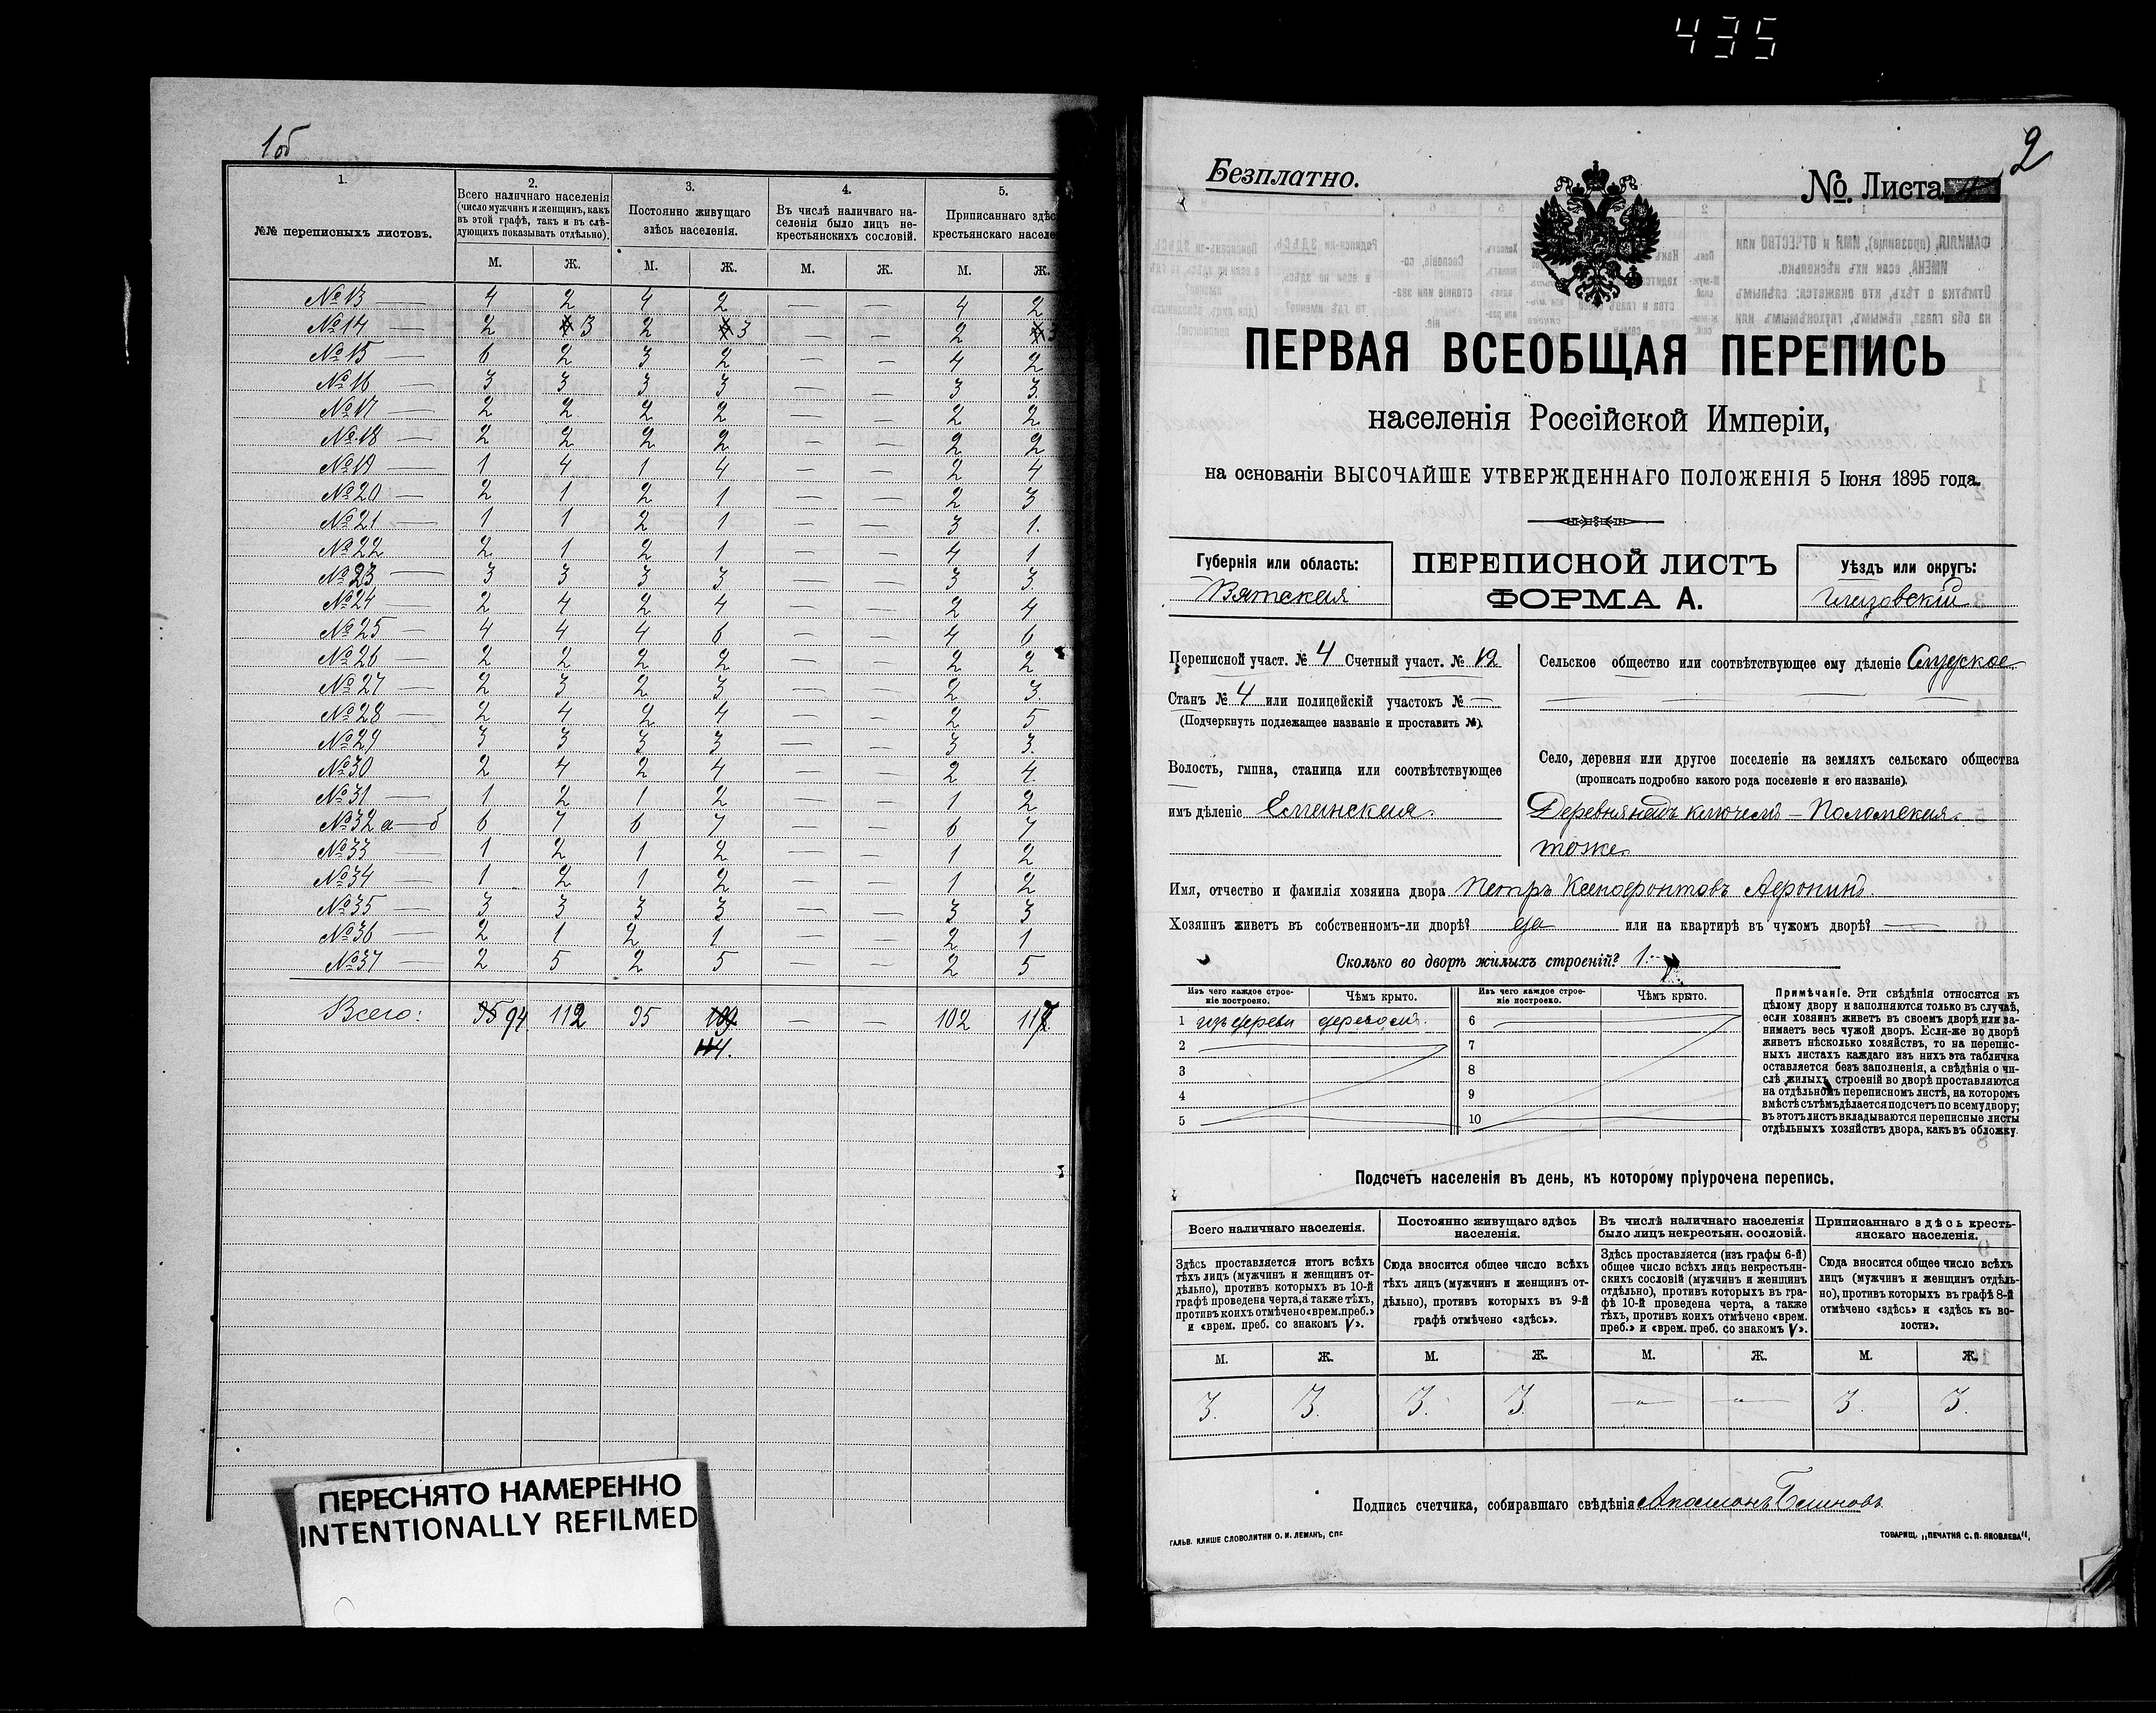 435
1об
1.
2.
3.
4.
5.
№№ переписныхъ листовъ.
Всего наличнаго населенія
(число мужчинъ и женщинъ, какъ
въ этой графѣ, такъ и въ слѣ-
дующихъ показывать отдѣльно).
Постоянно живущаго
здѣсь населенія.
Въ числѣ наличнаго на-
селенія было лицъ не-
крестьянскихъ сословій.
Приписаннаго здѣс
крестьянскаго населе
М. Ж. М. Ж. М. Ж. М. Ж.
№ 13 — 4 2 4 2 — — 4 2
№ 14 — 2 3 2 3 — — 2 3
№ 15 — 6 2 3 2 — — 4 2
№ 16 — 3 3 3 3 — — 3 3.
№ 17 — 2 2 2 2 — — 2 2
№ 18 — 2 2 2 2 — — 2 2
№ 19 — 1 4 1 4 — — 2 4
№ 20 — 2 1 2 1 — — 2 3
№ 21 — 1 1 2 1 — — 3 1.
№ 22 2 1 2 1 — — 4 1
№ 23 — 3 3 3 3 — — 3 3
№ 24 — 2 4 2 4 — — 2 4
№ 25 — 4 4 4 6 — — 4 6
№ 26 — 2 2 2 2 — — 2 2
№ 27 — 2 3 2 3 — — 2 3.
№ 28 — 2 4 2 4 — — 2 5
№ 29 — 3 3 3 3 — — 3 3.
№ 30 2 4 2 4 — — 2 4
№ 31 — 1 2 1 2 — — 1 2
№ 32 а — б 6 7 6 7 — — 6 7
№ 33 — 1 2 1 2 — — 1 2
№ 34 — 1 2 1 2 — — 1 2
№ 35 — 3 3 3 3 — — 3 3
№ 36 — 2 1 2 1 — — 2 1
№ 37 — 2 5 2 5 — — 2 5
Всего: 95 94 112 95 109 — — 102 117
114.
ПЕРЕСНЯТО НАМЕРЕННО
INTENTIONALLY REFILMED
2
Безплатно.
№. Листа
ПЕРВАЯ ВСЕОБЩАЯ ПЕРЕПИСЬ
населенія Россійской Имперіи,
на основаніи ВЫСОЧАЙШЕ УТВЕРЖДЕННАГО ПОЛОЖЕНІЯ 5 Іюня 1895 года.
Губернія или область:
Вятская
ПЕРЕПИСНОЙ ЛИСТЪ
ФОРМА А.
Уѣздъ или округъ:
Глазовскій
Переписной участ. № 4 Счетный участ. № 12
Станъ № 4 или полицейскій участокъ № —
(Подчеркнуть подлежащее названіе и проставить №).
Волость, гмина, станица или соотвѣтствующее
имъ дѣленіе Еланская.
Сельское общество или соотвѣтствующее ему дѣленіе
Село, деревня или другое поселеніе на земляхъ сельскаго общества
(прописать подробно какого рода поселеніе и его названіе).
Деревня надъ ключемъ — Поломская
тоже
Имя, отчество и фамилія хозяина двора Петръ Ксенофонтовъ Афонинъ.
Хозяинъ живетъ въ собственномъ-ли дворѣ? да или на квартирѣ въ чужомъ дворѣ? —
Сколько во дворѣ жилыхъ строеній? 1.
Изъ чего каждое строе-
ніе построено.
Чѣмъ крыто.
Изъ чего каждое строе-
ніе построено.
Чѣмъ крыто.
1 изъ дерева деревомъ. 6
2 7
3 8
4 9
5 10
Примѣчаніе. Эти свѣдѣнія относятся къ
цѣлому двору и заполняются только въ случаѣ,
если хозяинъ живетъ въ своемъ дворѣ или за-
нимаетъ весь чужой дворъ. Если-же во дворѣ
живетъ нѣсколько хозяйствъ, то на перепис-
ныхъ листахъ каждаго изъ нихъ эта табличка
оставляется безъ заполненія, а свѣдѣнія о чи-
слѣ жилыхъ строеній во дворѣ проставляются
на отдѣльномъ переписномъ листѣ, на которомъ
вмѣстѣ съ тѣмъ дѣлается подсчетъ по всему двору;
въ этотъ листъ вкладываются переписные листы
отдѣльныхъ хозяйствъ двора, какъ въ обложку.
Подсчетъ населенія въ день, къ которому пріурочена перепись.
Всего наличнаго населенія.
Здѣсь проставляется итогъ всѣхъ
тѣхъ лицъ (мужчинъ и женщинъ от-
дѣльно), противъ которыхъ въ 10-й
графѣ проведена черта, а также тѣхъ,
противъ коихъ отмѣчено «врем. преб.»
и «врем. преб. со знакомъ V».
Постоянно живущаго здѣсь
населенія.
Сюда вносится общее число всѣхъ
тѣхъ лицъ (мужчинъ и женщинъ от-
дѣльно), противъ которыхъ въ 9-й
графѣ отмѣчено «здѣсь».
Въ числѣ наличнаго населенія
было лицъ некрестьян. сословій.
Здѣсь проставляется (изъ графы 6-й)
общее число всѣхъ лицъ некрестьян-
скихъ сословій (мужчинъ и женщинъ
отдѣльно), противъ которыхъ въ гра-
фѣ 10-й проведена черта, а также
тѣхъ, противъ коихъ отмѣчено «врем.
преб.» и «врем. преб. со знакомъ V».
Приписаннаго здѣсь кресть-
янскаго населенія.
Сюда вносится общее число всѣхъ
лицъ (мужчинъ и женщинъ отдѣль-
но), противъ которыхъ въ графѣ 8-й
отмѣчено «здѣсь» и «здѣсь къ во-
лости».
М. Ж. М. Ж. М. Ж. М. Ж.
3. 3. 3. 3. — — 3. 3.
Подпись счетчика, собиравшаго свѣдѣнія Аполлонъ Блиновъ
ГАЛЬВ. КЛИШЕ СЛОВОЛИТНИ О. И. ЛЕМАНЪ, СПБ
ТОВАРИЩ. „ПЕЧАТНЯ С. П. ЯКОВЛЕВА“.